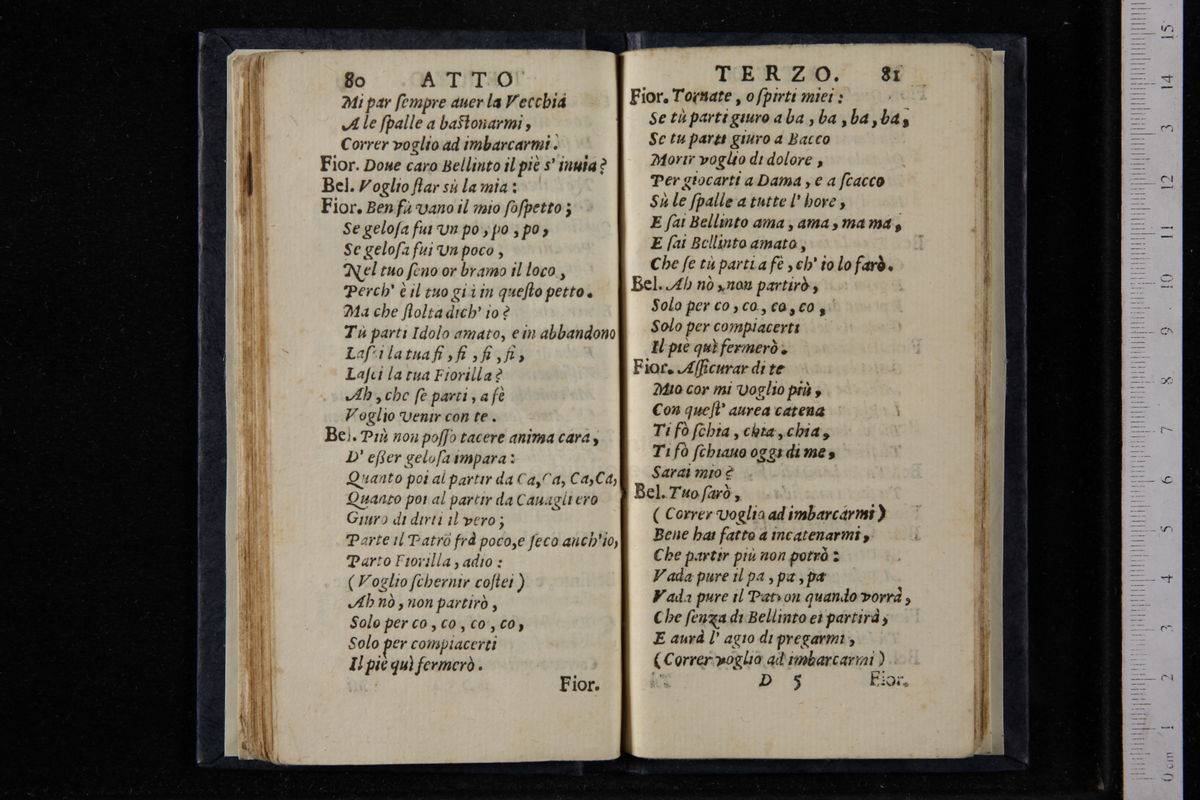 80 ATTO
Mi par ſempre auer la Vecchia
A le ſpalle a baſtonarmi,
Correr voglio ad imbarcarmi.
Fior. Doue caro Bellinto il piè s' inuia?
Bel. Voglio ſtar sù la mia:
Fior. Ben fù vano il mio ſoſpetto;
Se geloſa fui vn po, po, po,
Se geloſa fui vn poco,
Nel tuo ſeno or bramo il loco,
Perch' è il tuo gi i in queſto petto.
Ma che ſtolta dich' io?
Tù parti Idolo amato, e in abbandono
Laſci la tua fi, fi, fi, fi,
Laſci la tua Fiorilla?
Ah, che ſe parti, a fè
Voglio venir con te.
Bel. Più non poſſo tacere anima cara,
D' eßer geloſa impara:
Quanto poi al partir da Ca, Ca, Ca, Ca,
Quanto poi al partir da Cauagliero
Giuro di dirti il vero;
Parte il Patrõ frà poco, e ſeco anch'io,
Parto Fiorilla, adio:
(Voglio ſchernir coſtei)
Ah nò, non partirò,
Solo per co, co, co, co,
Solo per compiacerti
Il piè quì fermerò.
Fior.
TERZO. 81
Fior. Tornate, o ſpirti miei:
Se tù parti giuro a ba, ba, ba, ba,
Se tu parti giuro a Bacco
Morir voglio di dolore,
Per giocarti a Dama, e a ſcacco
Sù le ſpalle a tutte l' hore,
E ſai Bellinto ama, ama, ma ma,
E ſai Bellinto amato,
Che ſe tù parti a fè, ch' io lo farò.
Bel. Ah nò, non partirò,
Solo per co, co, co, co,
Solo per compiacerti
Il piè quì fermerò.
Fior. Aſſicurar di te
Mio cor mi voglio più,
Con queſt' aurea catena
Ti fò ſchia, chia, chia,
Ti fò ſchiauo oggi di me,
Sarai mio?
Bel. Tuo ſarò,
(Correr voglio ad imbarcarmi)
Bene hai fatto a incatenarmi,
Che partir più non potrò:
Vada pure il pa, pa, pa
Vada pure il Patron quando vorrà,
Che ſenza di Bellinto ei partirà,
E aurà l' agio di pregarmi,
(Correr voglio ad imbarcarmi)
D 5 Fior.
0 cm 1 2 3 4 5 6 7 8 9 10 11 12 13 14 15